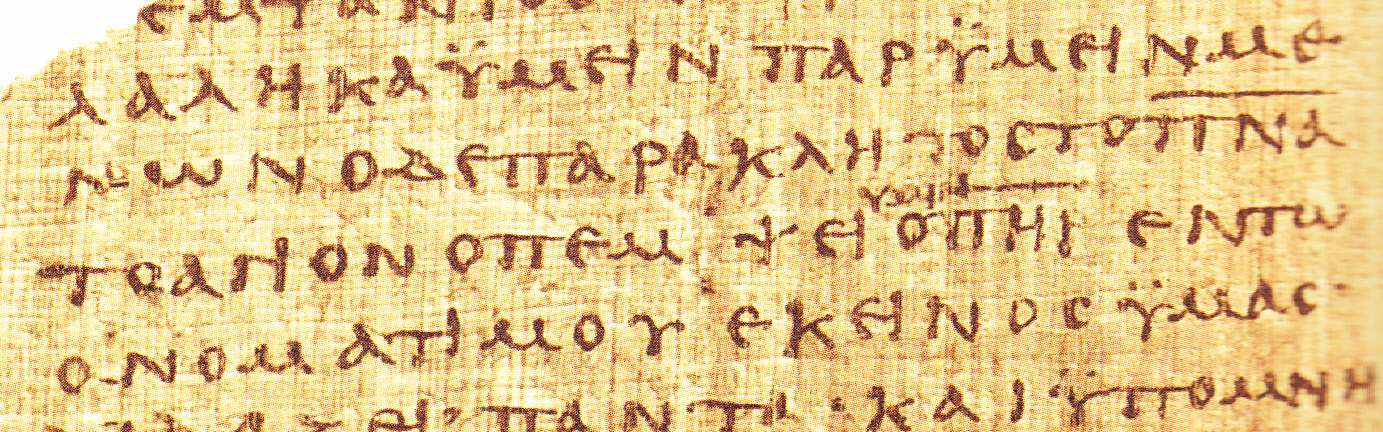 ΛΑΛΗΚΑΫΜΕΙΝ ΠΑΡΫΜΕΙΝΜΕ
ΝΩΝ ΟΔΕΠΑΡΑΚΛΗΤΟϹΤΟΠΝΑ
ΤΟΑΓΙΟΝ ΟΠΕΜΨΕΙ ΟΠΗΡ ΕΝΤΩ
ΟΝΟΜΑΤΙΜΟΥ ΕΚΕΙΝΟϹ ΫΜΑϹ·
ΠΑΝΤΑ·ΚΑΙ ΫΠΟΜΝΗ